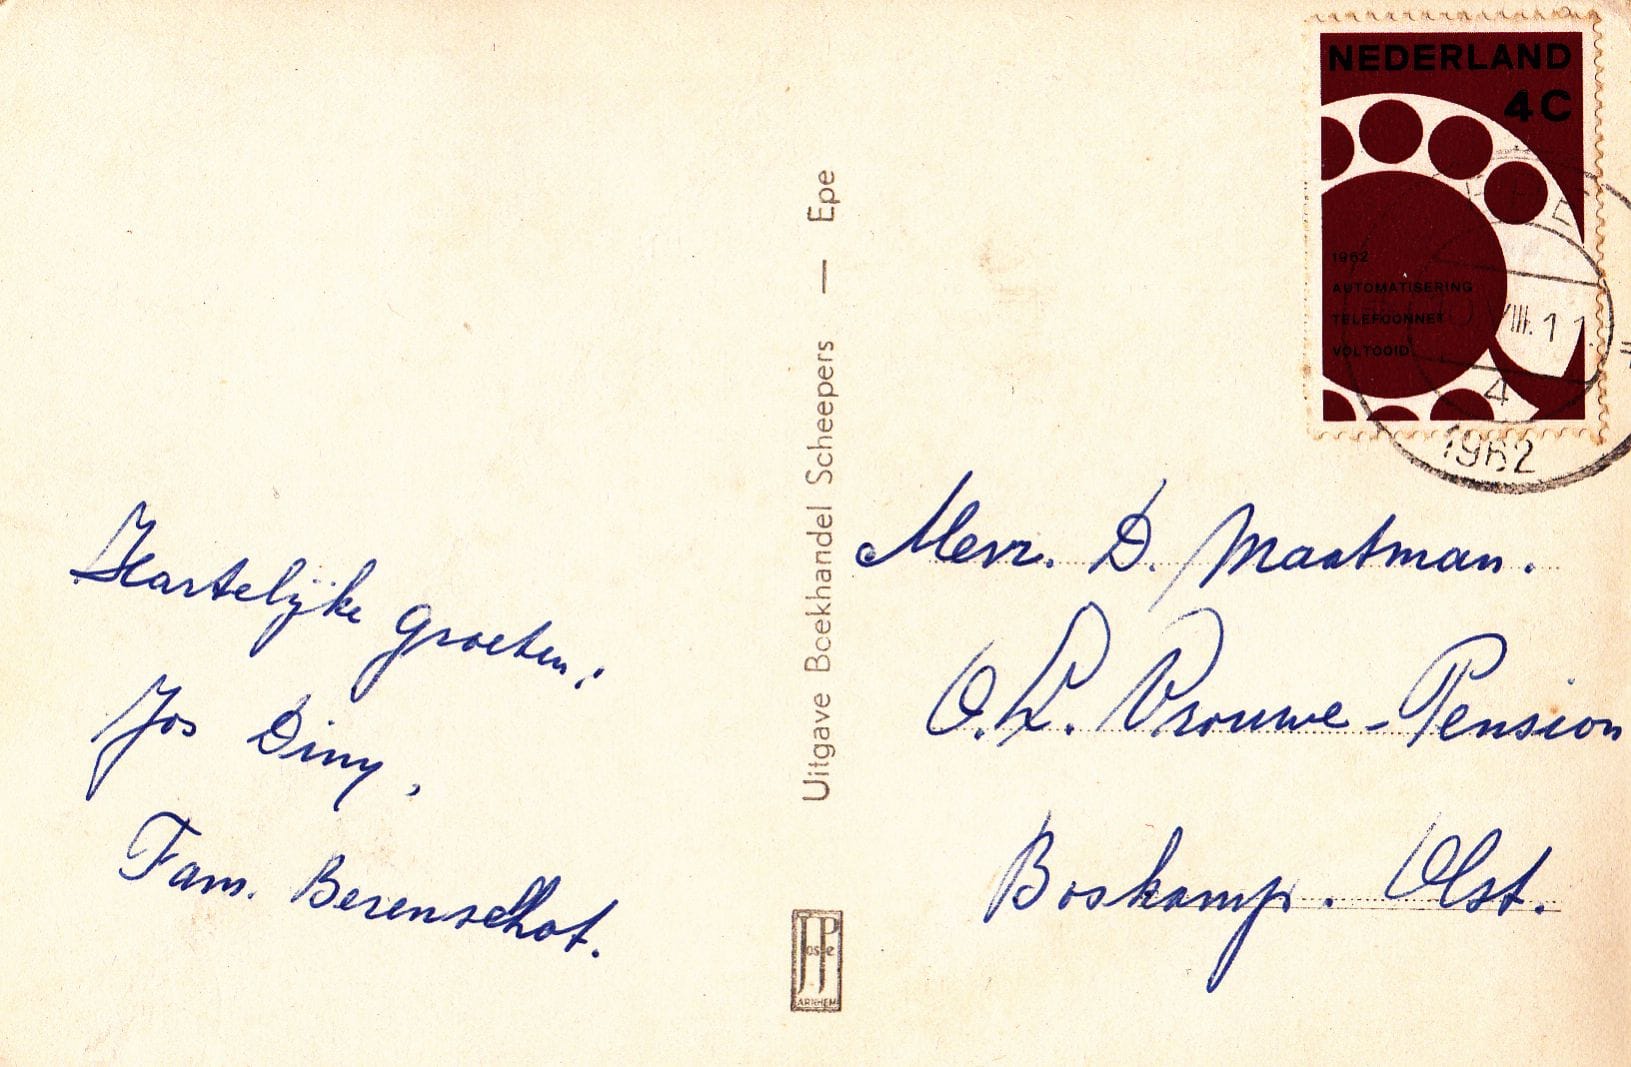 Hartelijke groeten,
Jos Diny,
Fam. Berenschot.
Uitgave Boekhandel Scheepers — Epe
JosPe
ARNHEM
NEDERLAND
4C
1962
AUTOMATISERING
TELEFOONNET
VOLTOOID
VIII.11
4
1962
Mevr. D. Maatman.
O.L. Vrouwe-Pension
Boskamp. Olst.